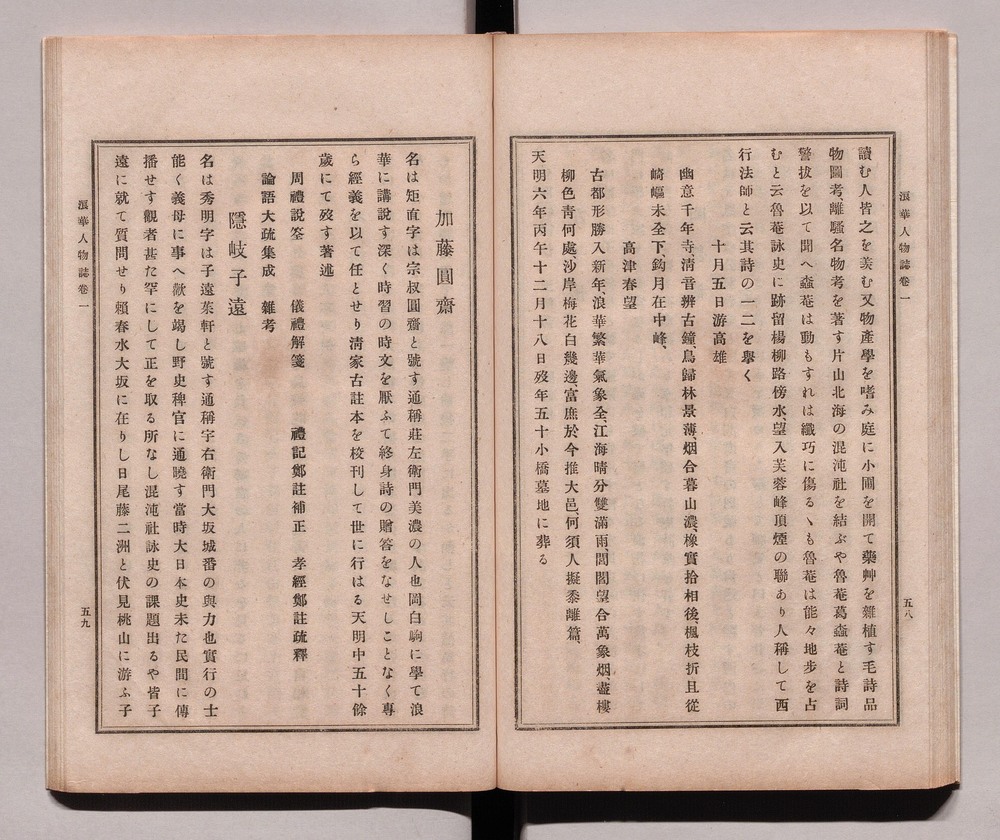 浪華人物誌卷一
五八
讀む人皆之を羨む又物產學を嗜み庭に小圃を開て藥艸を雜植す毛詩品
物圖考、離騷名物考を著す片山北海の混沌社を結ぶや魯菴葛蠧菴と詩詞
警拔を以て聞へ蠧菴は動もすれは纖巧に傷るヽも魯菴は能々地步を占
むと云魯菴詠史に跡留楊柳路傍水望入芙蓉峰頂煙の聯あり人稱して西
行法師と云其詩の一二を擧く
十月五日游高雄
幽意千年寺、淸音辨古鐘、鳥歸林景薄、烟合暮山濃、橡實拾相後、楓枝折且從
崎嶇未全下、鈎月在中峰、
高津春望
古都形勝入新年、浪華繁華氣象全、江海晴分雙滿雨、閭閻望合萬象烟、盡樓
柳色靑何處、沙岸梅花白幾邊、富庶於今推大邑、何須人擬黍離篇、
天明六年丙午十二月十八日歿年五十小橋墓地に葬る
加藤圓齋
名は矩直字は宗叔圓齋と號す通稱莊左衞門美濃の人也岡白駒に學て浪
華に講說す深く時習の時文を厭ふて終身詩の贈答をなせしことなく專
ら經義を以て任とせり淸家古註本を校刊して世に行はる天明中五十餘
歲にて歿す著述
周禮說筌　儀禮解箋　禮記鄭註補正　孝經鄭註疏釋
論語大疏集成　雜考
隱岐子遠
名は秀明字は子遠茱軒と號す通稱字右衞門大坂城番の與力也實行の士
能く義母に事へ歡を竭し野史稗官に通曉す當時大日本史未た民間に傳
播せす觀者甚た罕にして正を取る所なし混沌社詠史の課題出るや皆子
遠に就て質問せり賴春水大坂に在りし日尾藤二洲と伏見桃山に游ふ子
浪華人物誌卷一
五九